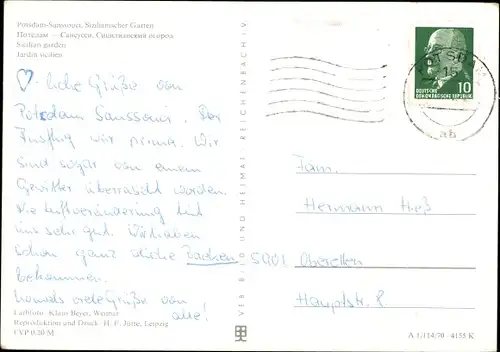 Potsdam-Sanssouci, Sizilianischer Garten
Потсдам — Сансуси, Сицилианский огород
Sicilian garden
Jardin sicilien
♡-liche Grüße von
Potsdam Sanssouci. Der
Ausflug war prima. Wir
sind sogar von einem
Gewitter überrascht worden.
Die Luftveränderung tut
uns sehr gut. Wir haben
schon ganz dicke Backen
bekommen.
viele Grüße von
alle!
Luftfoto: Klaus Beyer, Weimar
Reproduktion und Druck: H. F. Jütte, Leipzig
EVP 0,20 M
VEB BILD UND HEIMAT REICHENBACH i. V.
POTSDAM
ab
DEUTSCHE
DEMOKRATISCHE REPUBLIK
10
Fam.
Hermann Heß
5901 Oberellen
Hauptstr. 8
A 1/114/70 4155 K